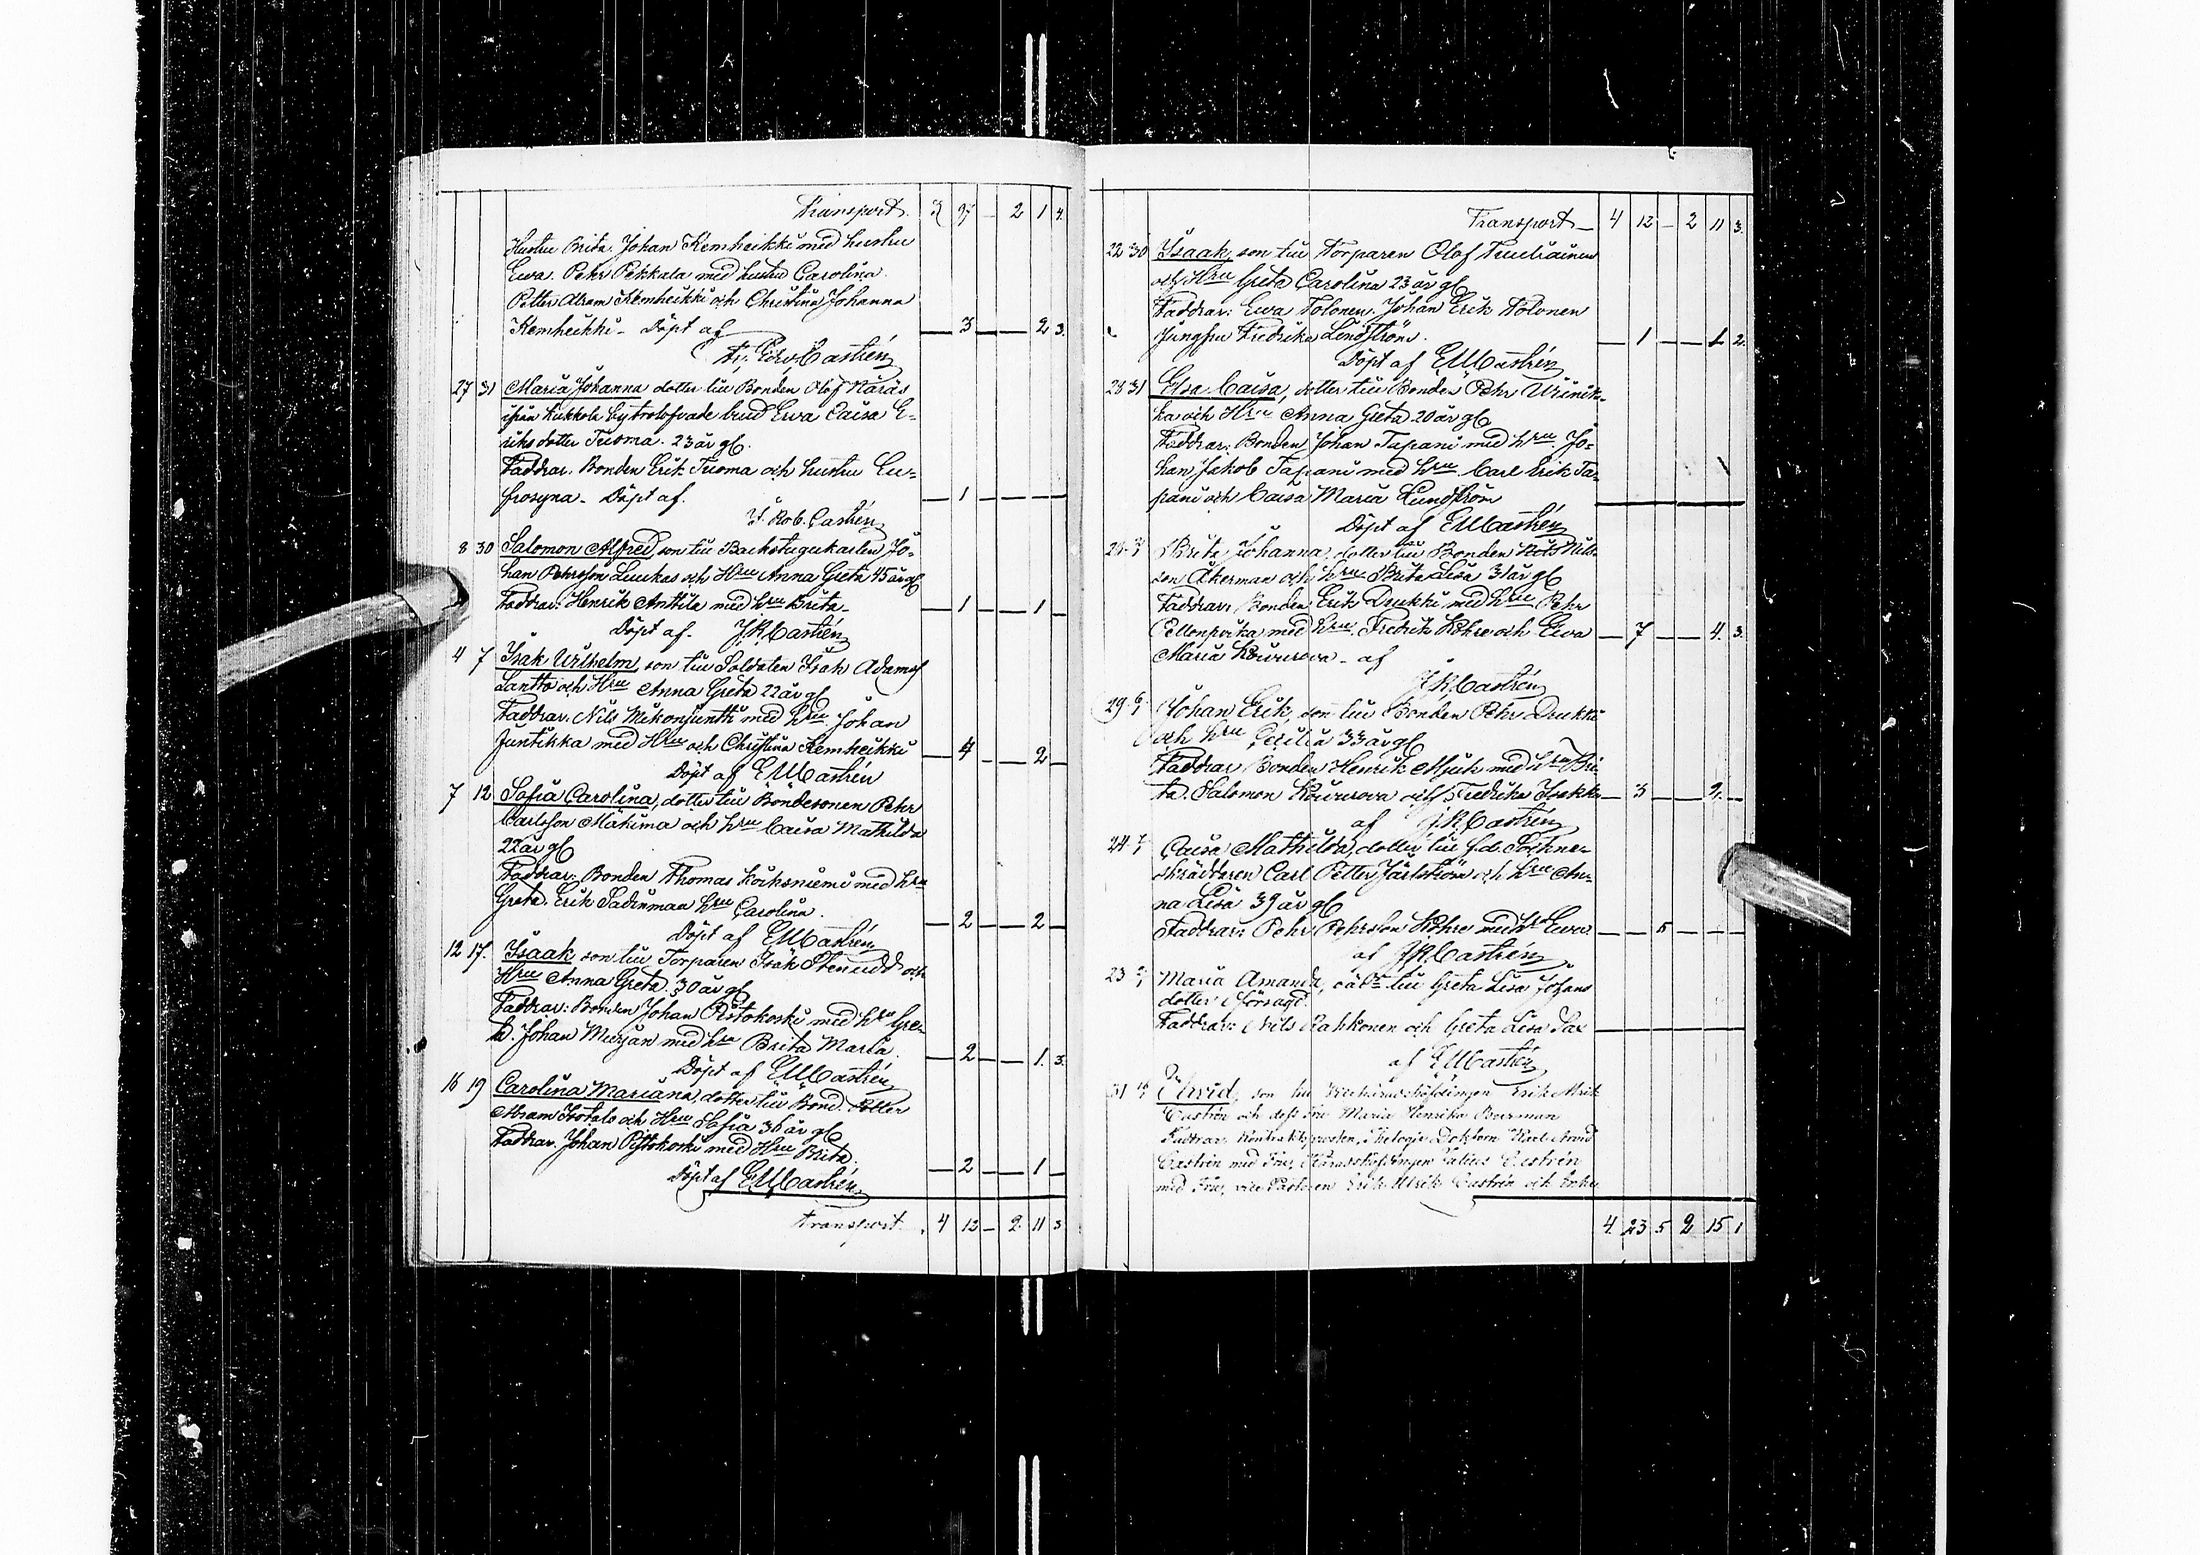 Transport. 3 97 — 2 1 4.
Hustru Brita. Johan Kemheikki med hustru
Ewa. Pehr Pekkala med hustru Carolina.
Petter Abram Kemheikki och Christina Johanna
Kemheikki. Döpt af — 3 — — 2 3.
Castrén
27 31 Maria Johanna dotter till Bonden Olof
ifrån Kukkola by trolofvade brud Ewa Caisa E-
riks dotter Tuoma. 23 år gl.
Faddrar. Bonden Erik Tuoma och hustru Eu-
frosyna. Döpt af. — 1 — — — —
Rob. Castrén
8 30 Salomon Alfred, son till Backstugukarlen Jo-
han Pehrsson Luukas och Hru Anna Greta 45 år gl
Faddrar: Henrik Anttila med hru Brita. — 1 — — 1 —
Döpt af. J R Castrén
4 7 Isak Wilhelm, son till Soldaten Isak Adamsf
Lantto och Hru Anna Greta 22 år gl
Faddrar. Nils Mikonjuntti med hru Johan
Juntikka med Hru och Christina Kemheikki — 4 — — 2 —
Döpt af E U Castrén
7 12 Sofia Carolina, dotter till Bondesonen Pehr
Carlsson Mäkima och hru Caisa Mathilda
22 år gl
Faddrar: Bonden Thomas Koiksniemi med hru
Greta. Erik hru Carolina. — 2 — — 2 —
Döpt af E U Castrén
12 17. Isaak son till Torparen Isak Stenudd och
Hru Anna Greta. 30 år gl
Faddrar: Bonden Johan Pistokoski med hru Gre-
ta. Johan med hru Brita Maria. — 2 — — 1. 3.
Döpt af E U Castrén
16 19 Carolina Mariana, dotter till Bond. Petter
Abram Isotalo och Hru Sofia 36 år gl
Faddrar. Johan Pistokoski med Hru Brita. — 2 — — 1 —
Döpt af E U Castrén
Transport. 4 12 — 2 11 3
Transport — 4 12 — 2 11 3.
22 30 Isaak, son till Torparen Olof
och Hru Greta Carolina 23 år gl
Faddrar: Ewa Tolonen. Johan Erik Tolonen
Jungfru Fredrika Lindström. — 1 — — 1 2.
Döpt af E U Castrén
28 31 Elsa Caisa, dotter till Bonden Pehr
ka och Hru Anna Greta 20 år gl
Faddrar: Bonden Johan Tapani med hru Jo-
han Jakob Tapani med hru. Carl Erik Ta-
pani och Caisa Maria Lundström
Döpt af E U Castrén
Brita Johanna, dotter till Bonden Nils
son Åkerman och hru Brita Lisa 31 år gl
Faddrar: Bonden Erik Drukki med hru Pehr
med hru. Fredrik Köhre och Ewa — 7 — — 4. 3.
Maria Kouurova. af
J R Castrén
29 Johan Erik, son till Bonden Pehr Drukki
och hru Cecilia 33 år gl
Faddrar Bonden Henrik Mjuk med hru Bri
ta. Salomon Kouurova och Fredrika — 3 — — 2. —
af J R Castrén
24 Caisa Mathilda, dotter till f.d. Sockne-
skräddaren Carl Petter Järlström och hru An-
na Lisa 39 år gl
Faddrar: Pehr Pehrsson Köhre med hru Ewa — — 5 — — —
af J R Castrén
23 Maria Amanda, till Greta Lisa Johans
dotter
Faddrar: Nils Rahkonen och Greta Lisa Sax
af E U Castrén
31 Arvid, son till Erik Ulrik
Castrén och dess Fru Maria Henrika Boorman
Faddrar: Kontraktsprosten, Theologie Doktorn Karl Arvid
Castrén med Fru, Häradshöfdingen Julius Castrén
med Fru, vice Pastoren Erik Ulrik Castrén och Enke
4 23 5 2 15 1